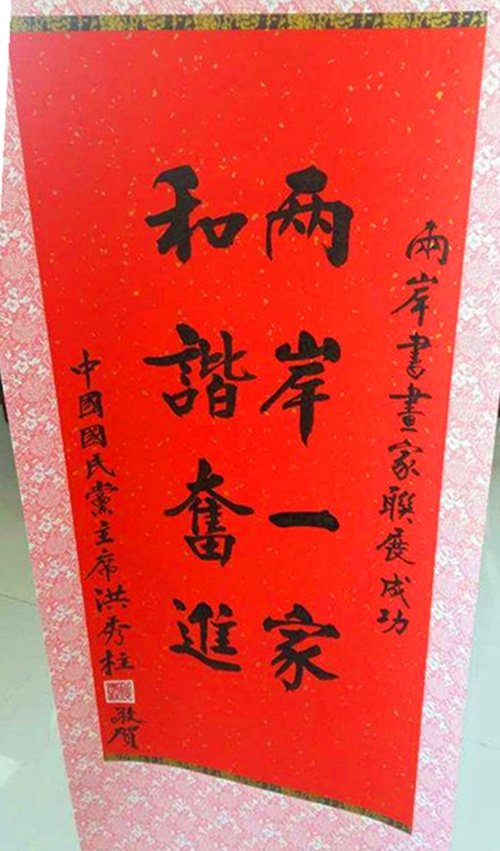 兩岸書畫家聯展成功
兩岸一家
和諧奮進
中國國民黨主席洪秀柱
敬賀